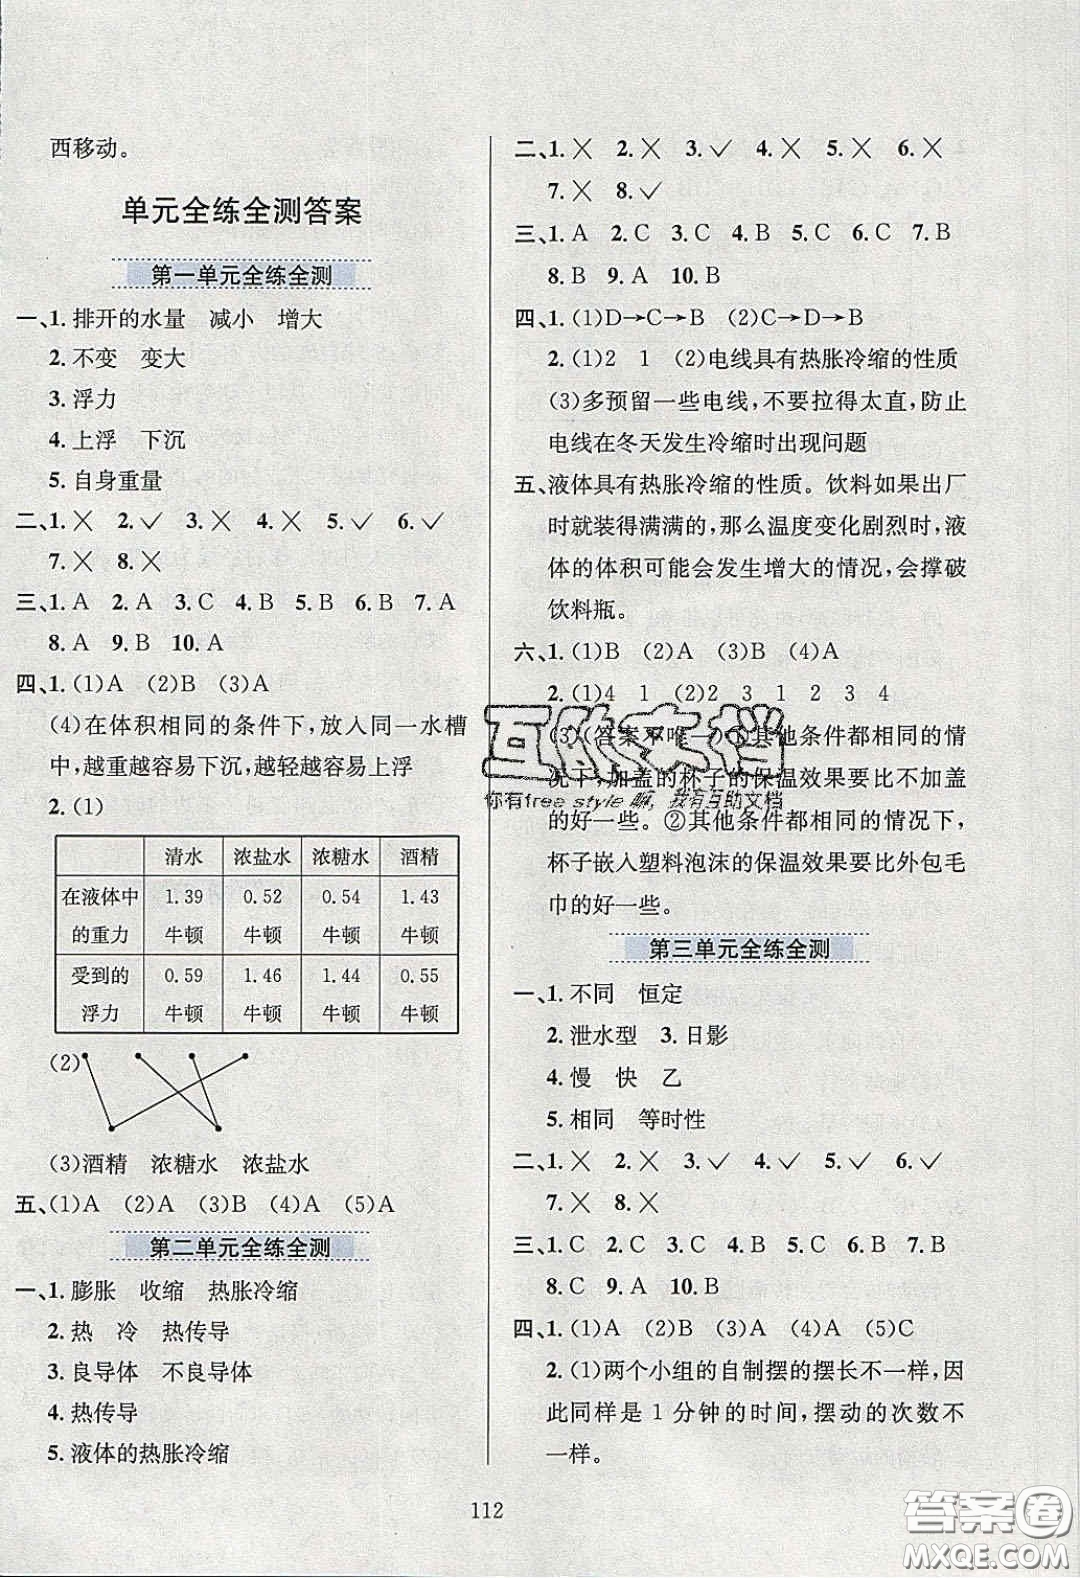 西移动。
单元全练全测答案
第一单元全练全测
一、1. 排开的水量 减小 增大
2. 不变 变大
3. 浮力
4. 上浮 下沉
5. 自身重量
二、1. ╳ 2. ✓ 3. ╳ 4. ╳ 5. ✓ 6. ✓
7. ╳ 8. ╳
三、1. A 2. A 3. C 4. B 5. B 6. B 7. A
8. A 9. B 10. A
四、1. (1)A (2)B (3)A
(4)在体积相同的条件下,放入同一水槽
中,越重越容易下沉,越轻越容易上浮
2. (1)
清水 浓盐水 浓糖水 酒精
在液体中的重力 1.39牛顿 0.52牛顿 0.54牛顿 1.43牛顿
受到的浮力 0.59牛顿 1.46牛顿 1.44牛顿 0.55牛顿
(2)
(3)酒精 浓糖水 浓盐水
五、(1)A (2)A (3)B (4)A (5)A
第二单元全练全测
一、1. 膨胀 收缩 热胀冷缩
2. 热 冷 热传导
3. 良导体 不良导体
4. 热传导
5. 液体的热胀冷缩
二、1. ╳ 2. ╳ 3. ✓ 4. ╳ 5. ╳ 6. ╳
7. ╳ 8. ✓
三、1. A 2. C 3. C 4. B 5. C 6. C 7. B
8. B 9. A 10. B
四、1. (1)D→C→B (2)C→D→B
2. (1)2 1 (2)电线具有热胀冷缩的性质
(3)多预留一些电线,不要拉得太直,防止
电线在冬天发生冷缩时出现问题
五、液体具有热胀冷缩的性质。饮料如果出厂
时就装得满满的,那么温度变化剧烈时,液
体的体积可能会发生增大的情况,会撑破
饮料瓶。
六、1. (1)B (2)A (3)B (4)A
2. (1)4 1 (2)2 3 1 2 3 4
(3)(答案不唯一)①其他条件都相同的情
况下,加盖的杯子的保温效果要比不加盖
的好一些。②其他条件都相同的情况下,
杯子嵌入塑料泡沫的保温效果要比外包毛
巾的好一些。
互助文档
你有free style嘛,我有互助文档
第三单元全练全测
一、1. 不同 恒定
2. 泄水型 3. 日影
4. 慢 快 乙
5. 相同 等时性
二、1. ╳ 2. ╳ 3. ✓ 4. ✓ 5. ✓ 6. ✓
7. ╳ 8. ╳
三、1. C 2. C 3. C 4. B 5. B 6. B 7. B
8. C 9. A 10. B
四、1. (1)A (2)B (3)A (4)A (5)C
2. (1)两个小组的自制摆的摆长不一样,因
此同样是1分钟的时间,摆动的次数不
一样。
112
答案卷
MXQE.COM